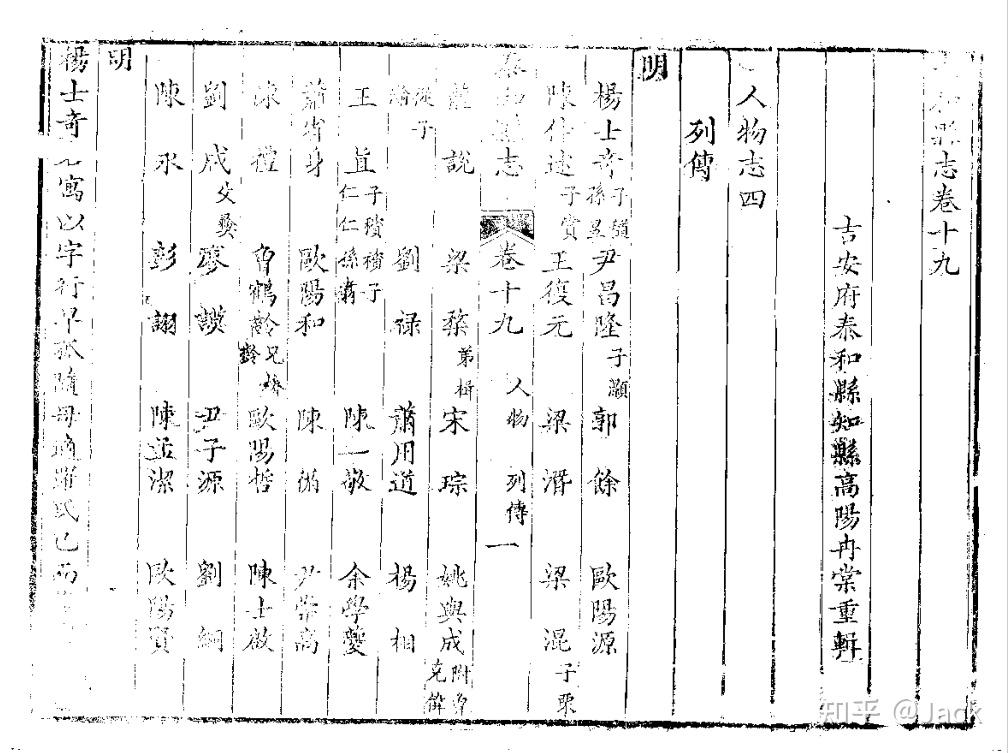 和縣志卷十九
吉安府泰和縣知縣高陽冉棠重輯
人物志四
列傳
明
楊士奇 子稷 孫 尹昌隆 子灝 郭餘 歐陽源
陳仲述 子賞 王復元 梁潛 梁混 子栗
泰和縣志 卷十九 人物 列傳 一
龍說 梁 弟楫 宋琮 姚與成 附 克偉
從子 劉祿 蕭用道 楊相
王直 子積 積子 仁仁 孫 陳一敬 余學夔
蕭省身 歐陽和 陳循 尹崇高
陳禮 曾鶴齡 兄 齡 歐陽哲 陳士啟
劉成 父 廖謨 尹子源 劉綱
陳永 彭詡 陳孟潔 歐陽賢
明
楊士奇名寓以字行早孤隨母適羅氏已而
知乎 @Jack